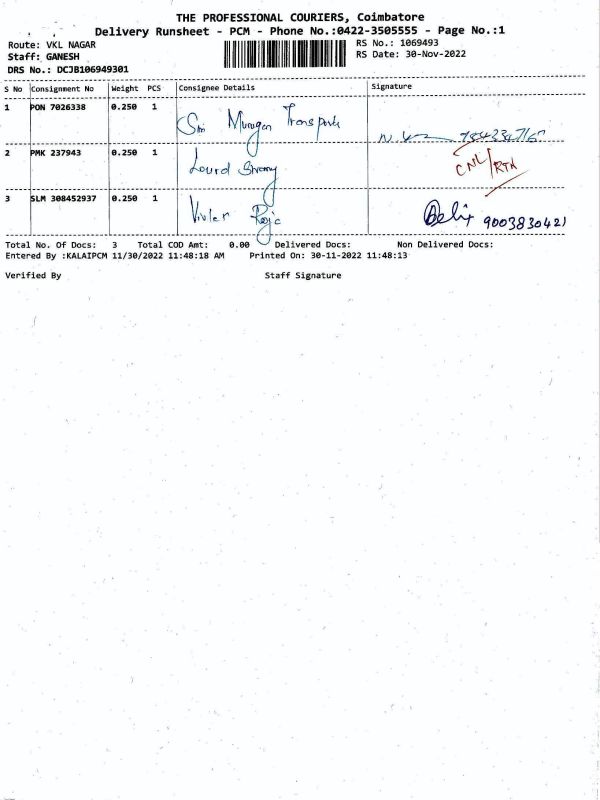 THE PROFESSIONAL COURIERS, Coimbatore
Delivery Runsheet - PCM - Phone No.:0422-3505555 - Page No.:1
Route: VKL NAGAR
RS No.: 1069493
Staff: GANESH
RS Date: 30-Nov-2022
DRS No.: DCJB106949301
S No Consignment No Weight PCS Consignee Details Signature
1 PON 7026338 0.250 1 Sri Murugan Transports
2 PMK 237943 0.250 1 Lourd CNL/RTN
3 SLM 308452937 0.250 1 9003830421
Total No. Of Docs: 3 Total COD Amt: 0.00 Delivered Docs: Non Delivered Docs:
Entered By :KALAIPCM 11/30/2022 11:48:18 AM Printed On: 30-11-2022 11:48:13
Verified By Staff Signature